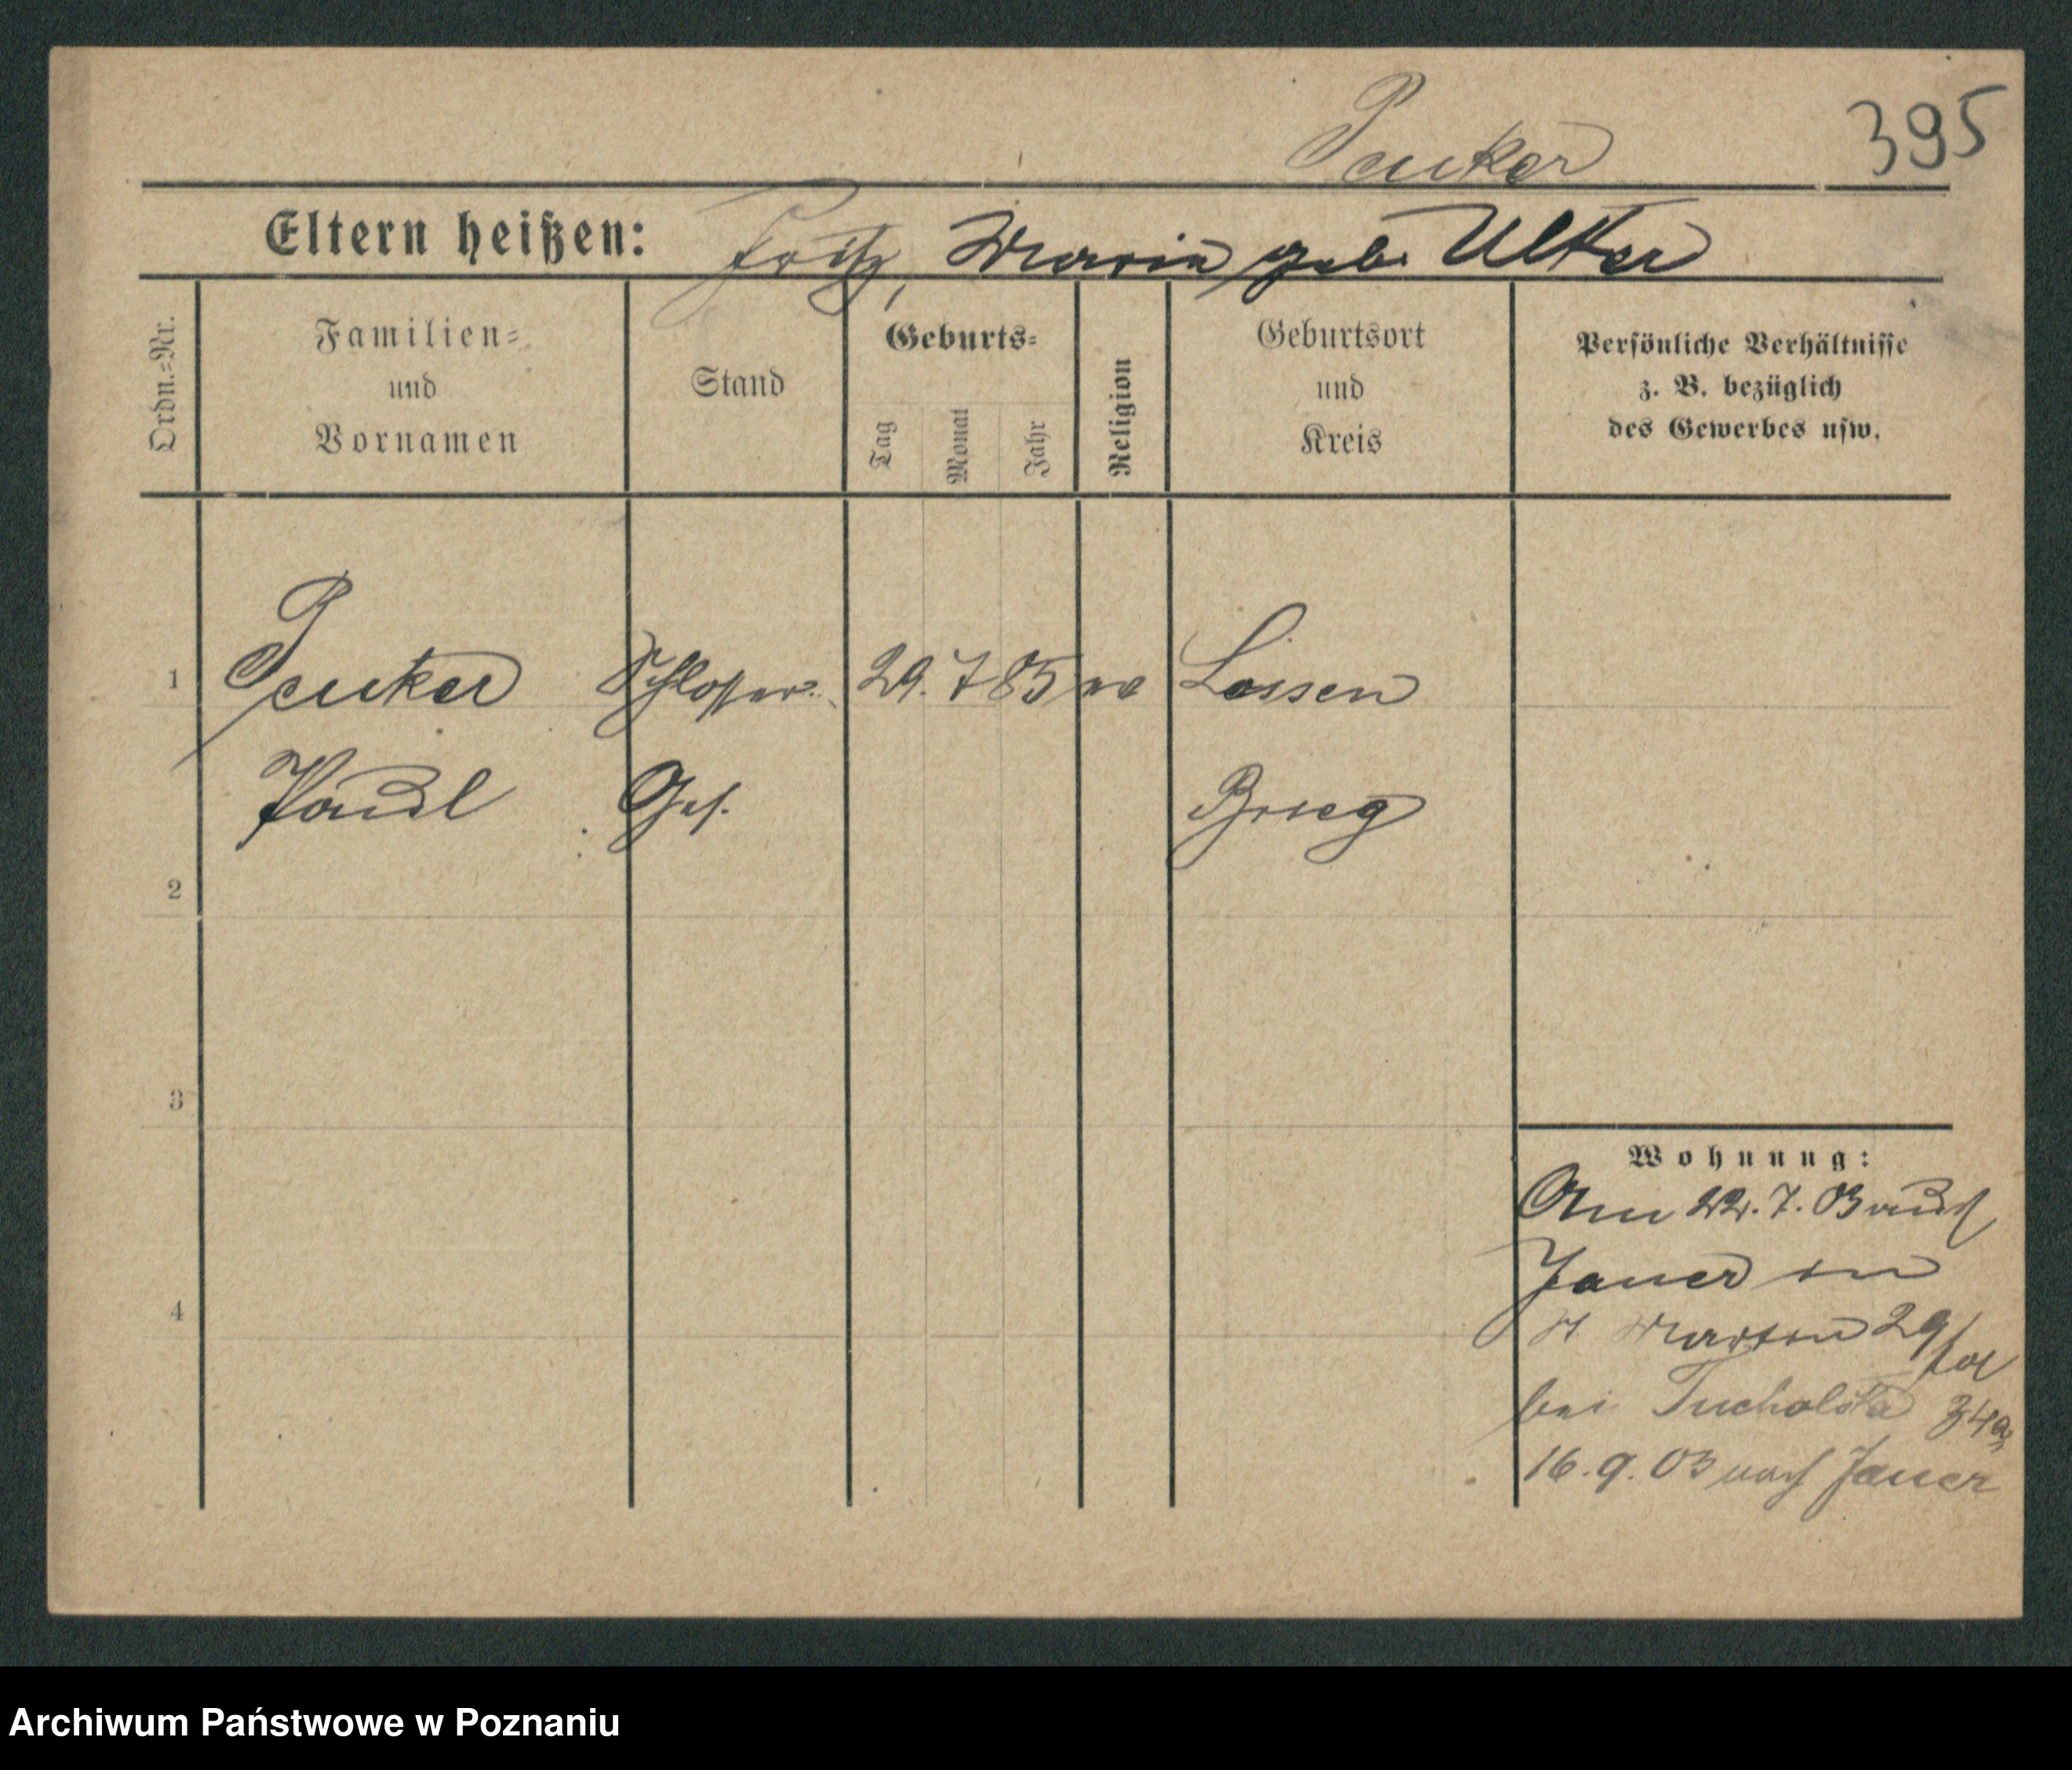 395
Peuker
Eltern heißen: Fritz, Maria geb. Ulker
Ordn.=Nr.
Familien=
und
Vornamen
Stand
Geburts=
Tag
Monat
Jahr
Religion
Geburtsort
und
Kreis
Persönliche Verhältnisse
z. B. bezüglich
des Gewerbes usw.
1 Peuker Schlosser 29. 7 85 ev Lossen
Paul Ges. Brieg
2
3
4
Wohnung:
Am 22. 7. 03 aus
Jauer in
St Martin 29
bei Tucholska
16. 9. 03 nach Jauer
Archiwum Państwowe w Poznaniu